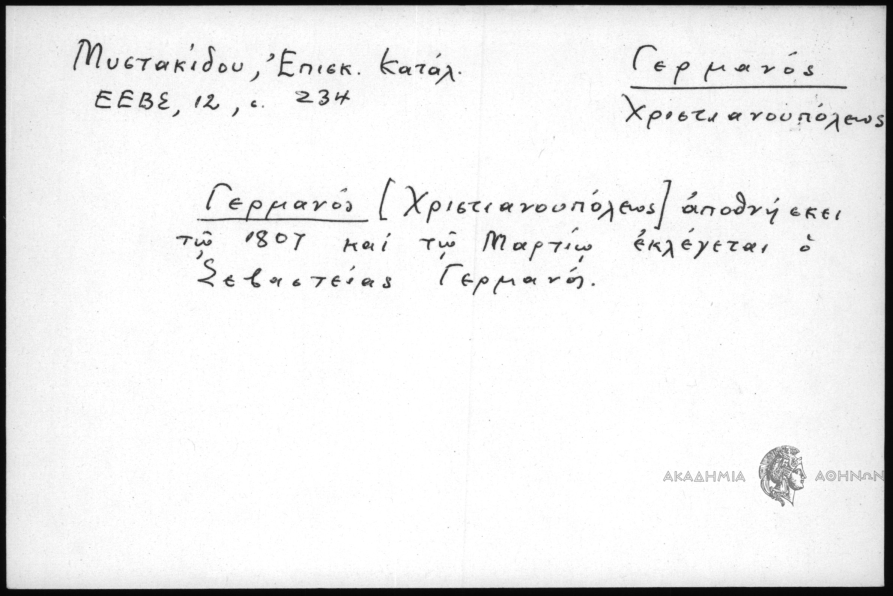 Μυστακίδου, Ἐπισκ. Κατάλ.
ΕΕΒΣ, 12, σ. 234
Γερμανός
Χριστιανουπόλεως
Γερμανός [Χριστιανουπόλεως] ἀποθνήσκει
τῷ 1807 καί τῷ Μαρτίῳ ἐκλέγεται ὁ
Σεβαστείας Γερμανός.
ΑΚΑΔΗΜΙΑ ΑΘΗΝΩΝ